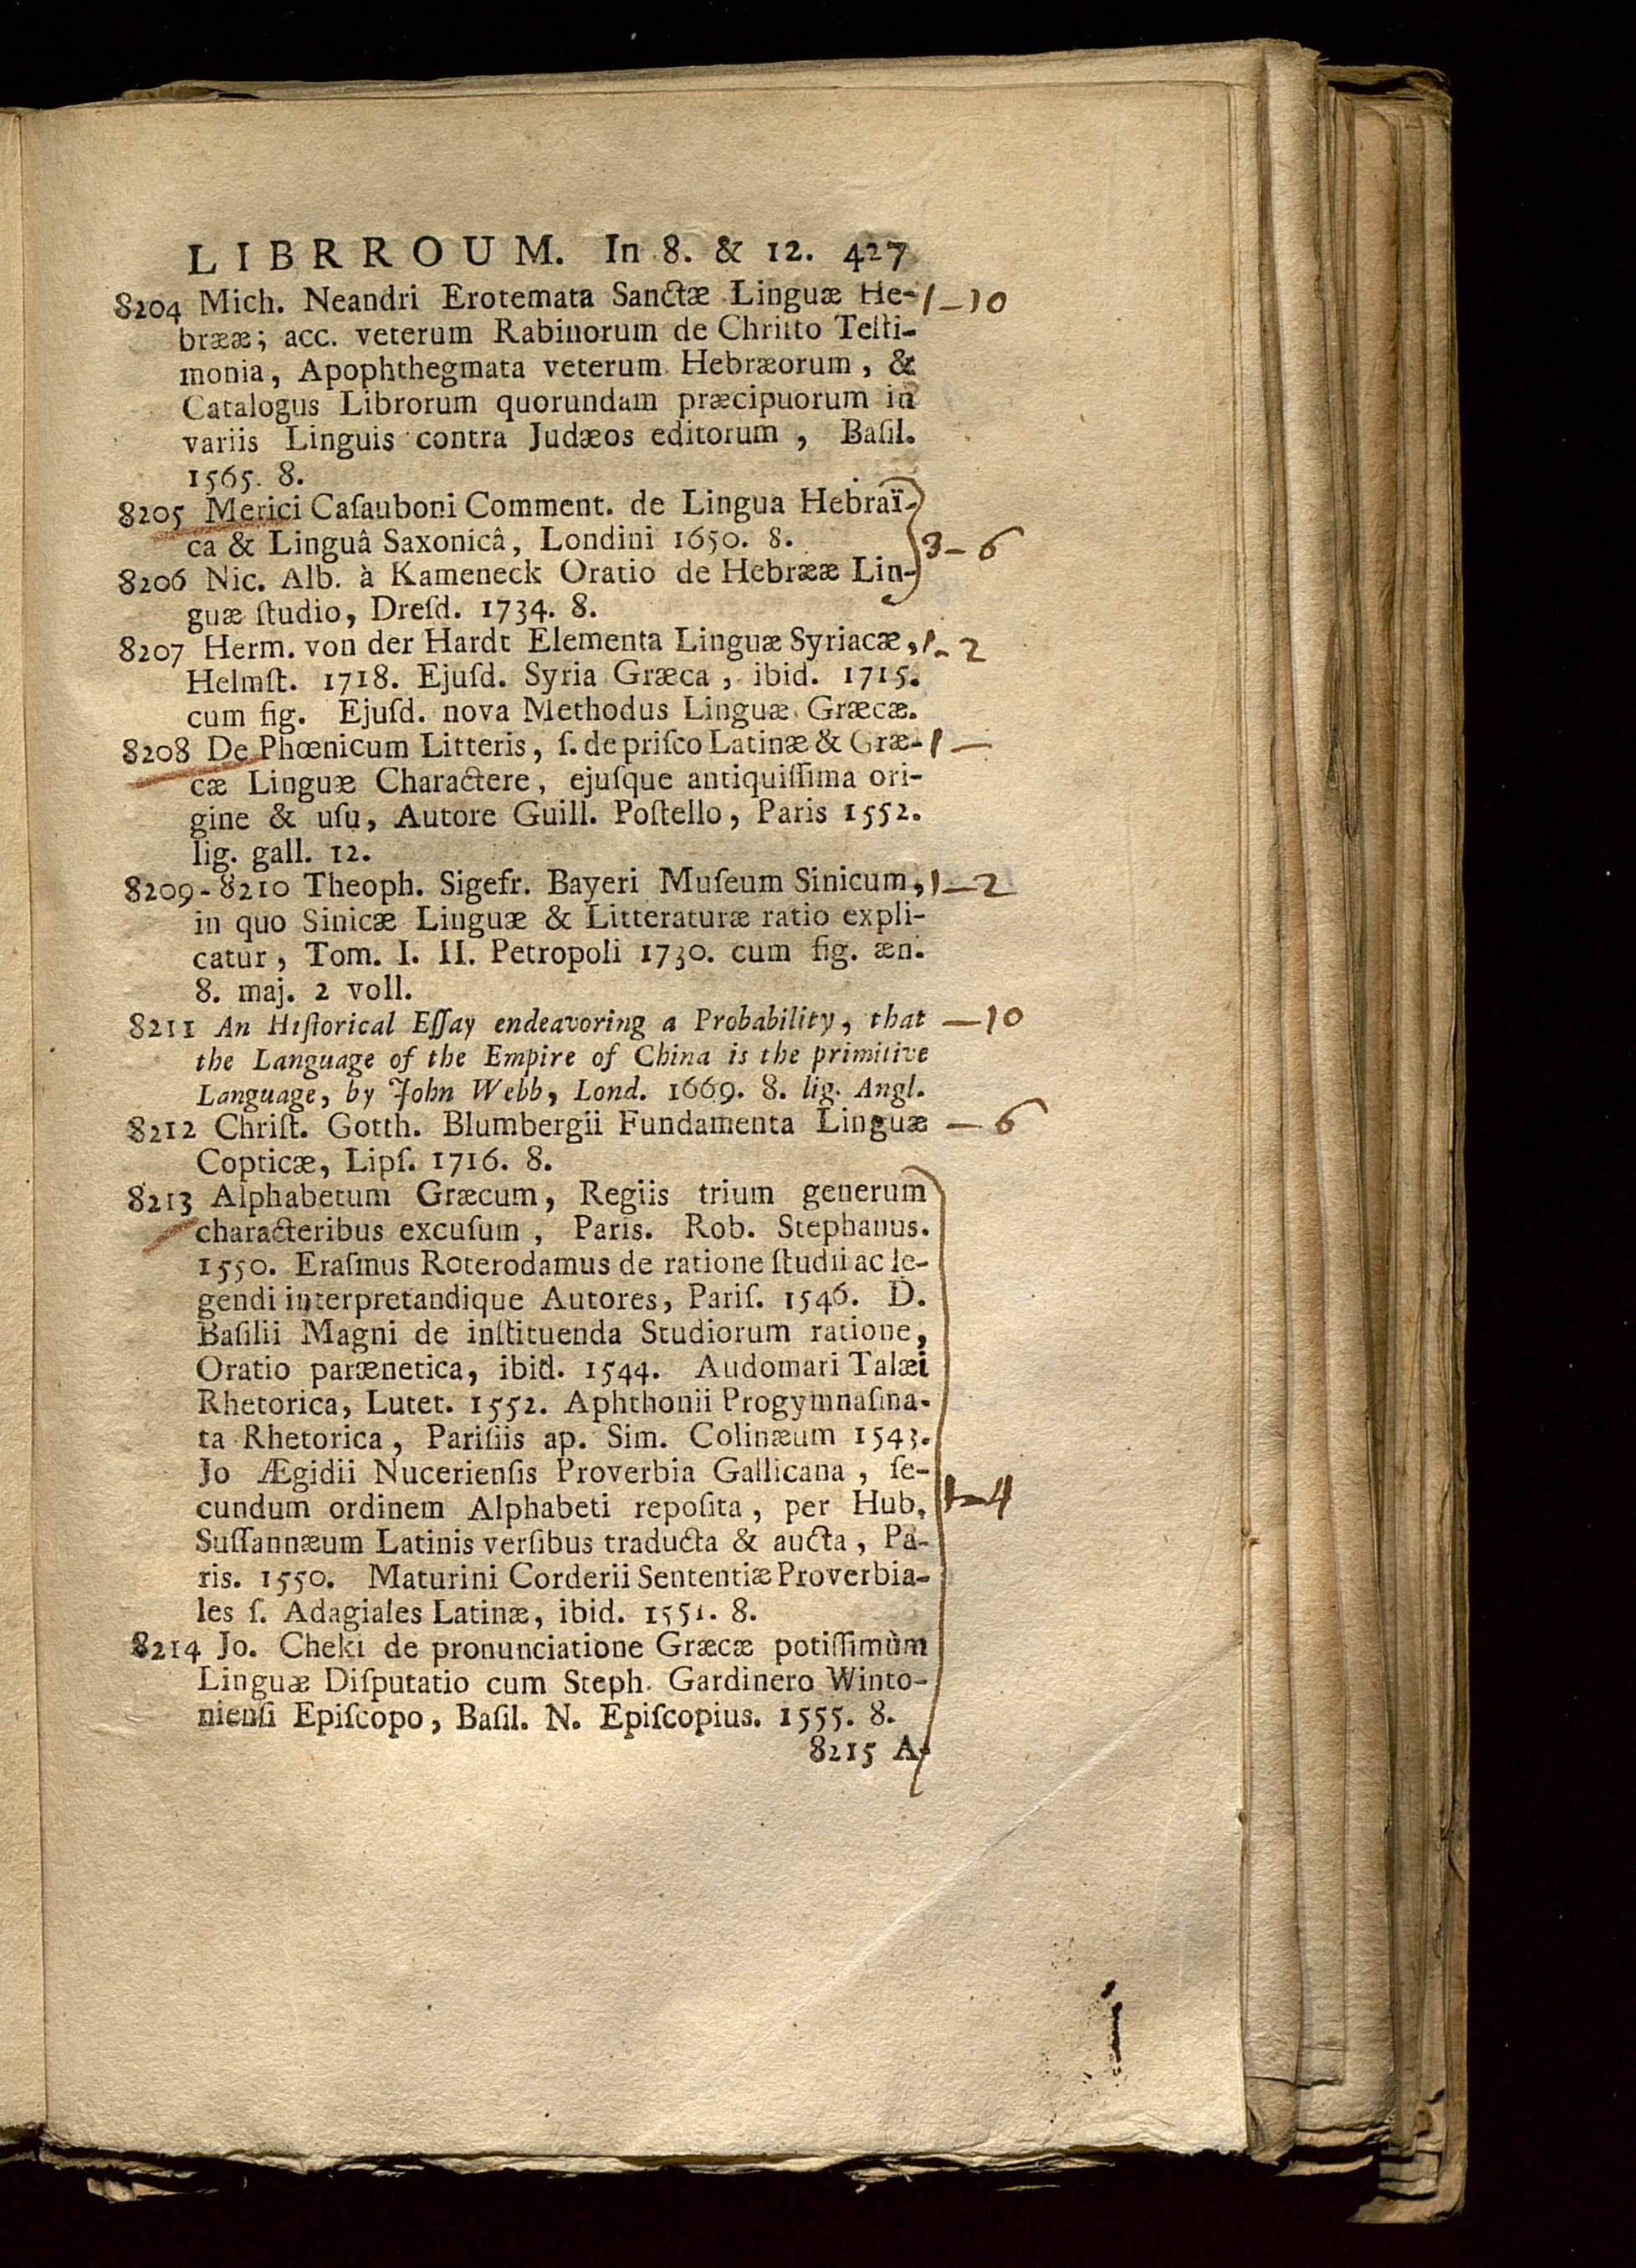 LIBRROUM. In 8. & 12. 427
8204 Mich. Neandri Erotemata Sanctæ Linguæ He- 1–10
brææ; acc. veterum Rabinorum de Chriſto Teſti-
monia, Apophthegmata veterum Hebræorum, &
Catalogus Librorum quorundam præcipuorum in
variis Linguis contra Judæos editorum, Baſil.
1565. 8.
8205 Merici Caſauboni Comment. de Lingua Hebraï-
ca & Linguâ Saxonicâ, Londini 1650. 8. 3–6
8206 Nic. Alb. à Kameneck Oratio de Hebrææ Lin-
guæ ſtudio, Dreſd. 1734. 8.
8207 Herm. von der Hardt Elementa Linguæ Syriacæ, 1–2
Helmſt. 1718. Ejuſd. Syria Græca, ibid. 1715.
cum fig. Ejuſd. nova Methodus Linguæ Græcæ.
8208 De Phœnicum Litteris, ſ. de priſco Latinæ & Græ- 1–
cæ Linguæ Charactere, ejuſque antiquiſſima ori-
gine & uſu, Autore Guill. Poſtello, Paris 1552.
lig. gall. 12.
8209-8210 Theoph. Sigefr. Bayeri Muſeum Sinicum, 1–2
in quo Sinicæ Linguæ & Litteraturæ ratio expli-
catur, Tom. I. II. Petropoli 1730. cum fig. æn.
8. maj. 2 voll.
8211 An Hiſtorical Eſſay endeavoring a Probability, that –10
the Language of the Empire of China is the primitive
Language, by John Webb, Lond. 1669. 8. lig. Angl.
8212 Chriſt. Gotth. Blumbergii Fundamenta Linguæ – 6
Copticæ, Lipſ. 1716. 8.
8213 Alphabetum Græcum, Regiis trium generum
characteribus excuſum, Paris. Rob. Stephanus.
1550. Eraſmus Roterodamus de ratione ſtudii ac le-
gendi interpretandique Autores, Pariſ. 1546. D.
Baſilii Magni de inſtituenda Studiorum ratione,
Oratio parænetica, ibid. 1544. Audomari Talæi
Rhetorica, Lutet. 1552. Aphthonii Progymnaſma-
ta Rhetorica, Pariſiis ap. Sim. Colinæum 1543.
Jo Ægidii Nucerienſis Proverbia Gallicana, ſe-
cundum ordinem Alphabeti repoſita, per Hub. 1–4
Suſſannæum Latinis verſibus traducta & aucta, Pa-
ris. 1550. Maturini Corderii Sententiæ Proverbia-
les ſ. Adagiales Latinæ, ibid. 1551. 8.
8214 Jo. Cheki de pronunciatione Græcæ potiſſimùm
Linguæ Diſputatio cum Steph. Gardinero Winto-
nienſi Epiſcopo, Baſil. N. Epiſcopius. 1555. 8.
8215 A-